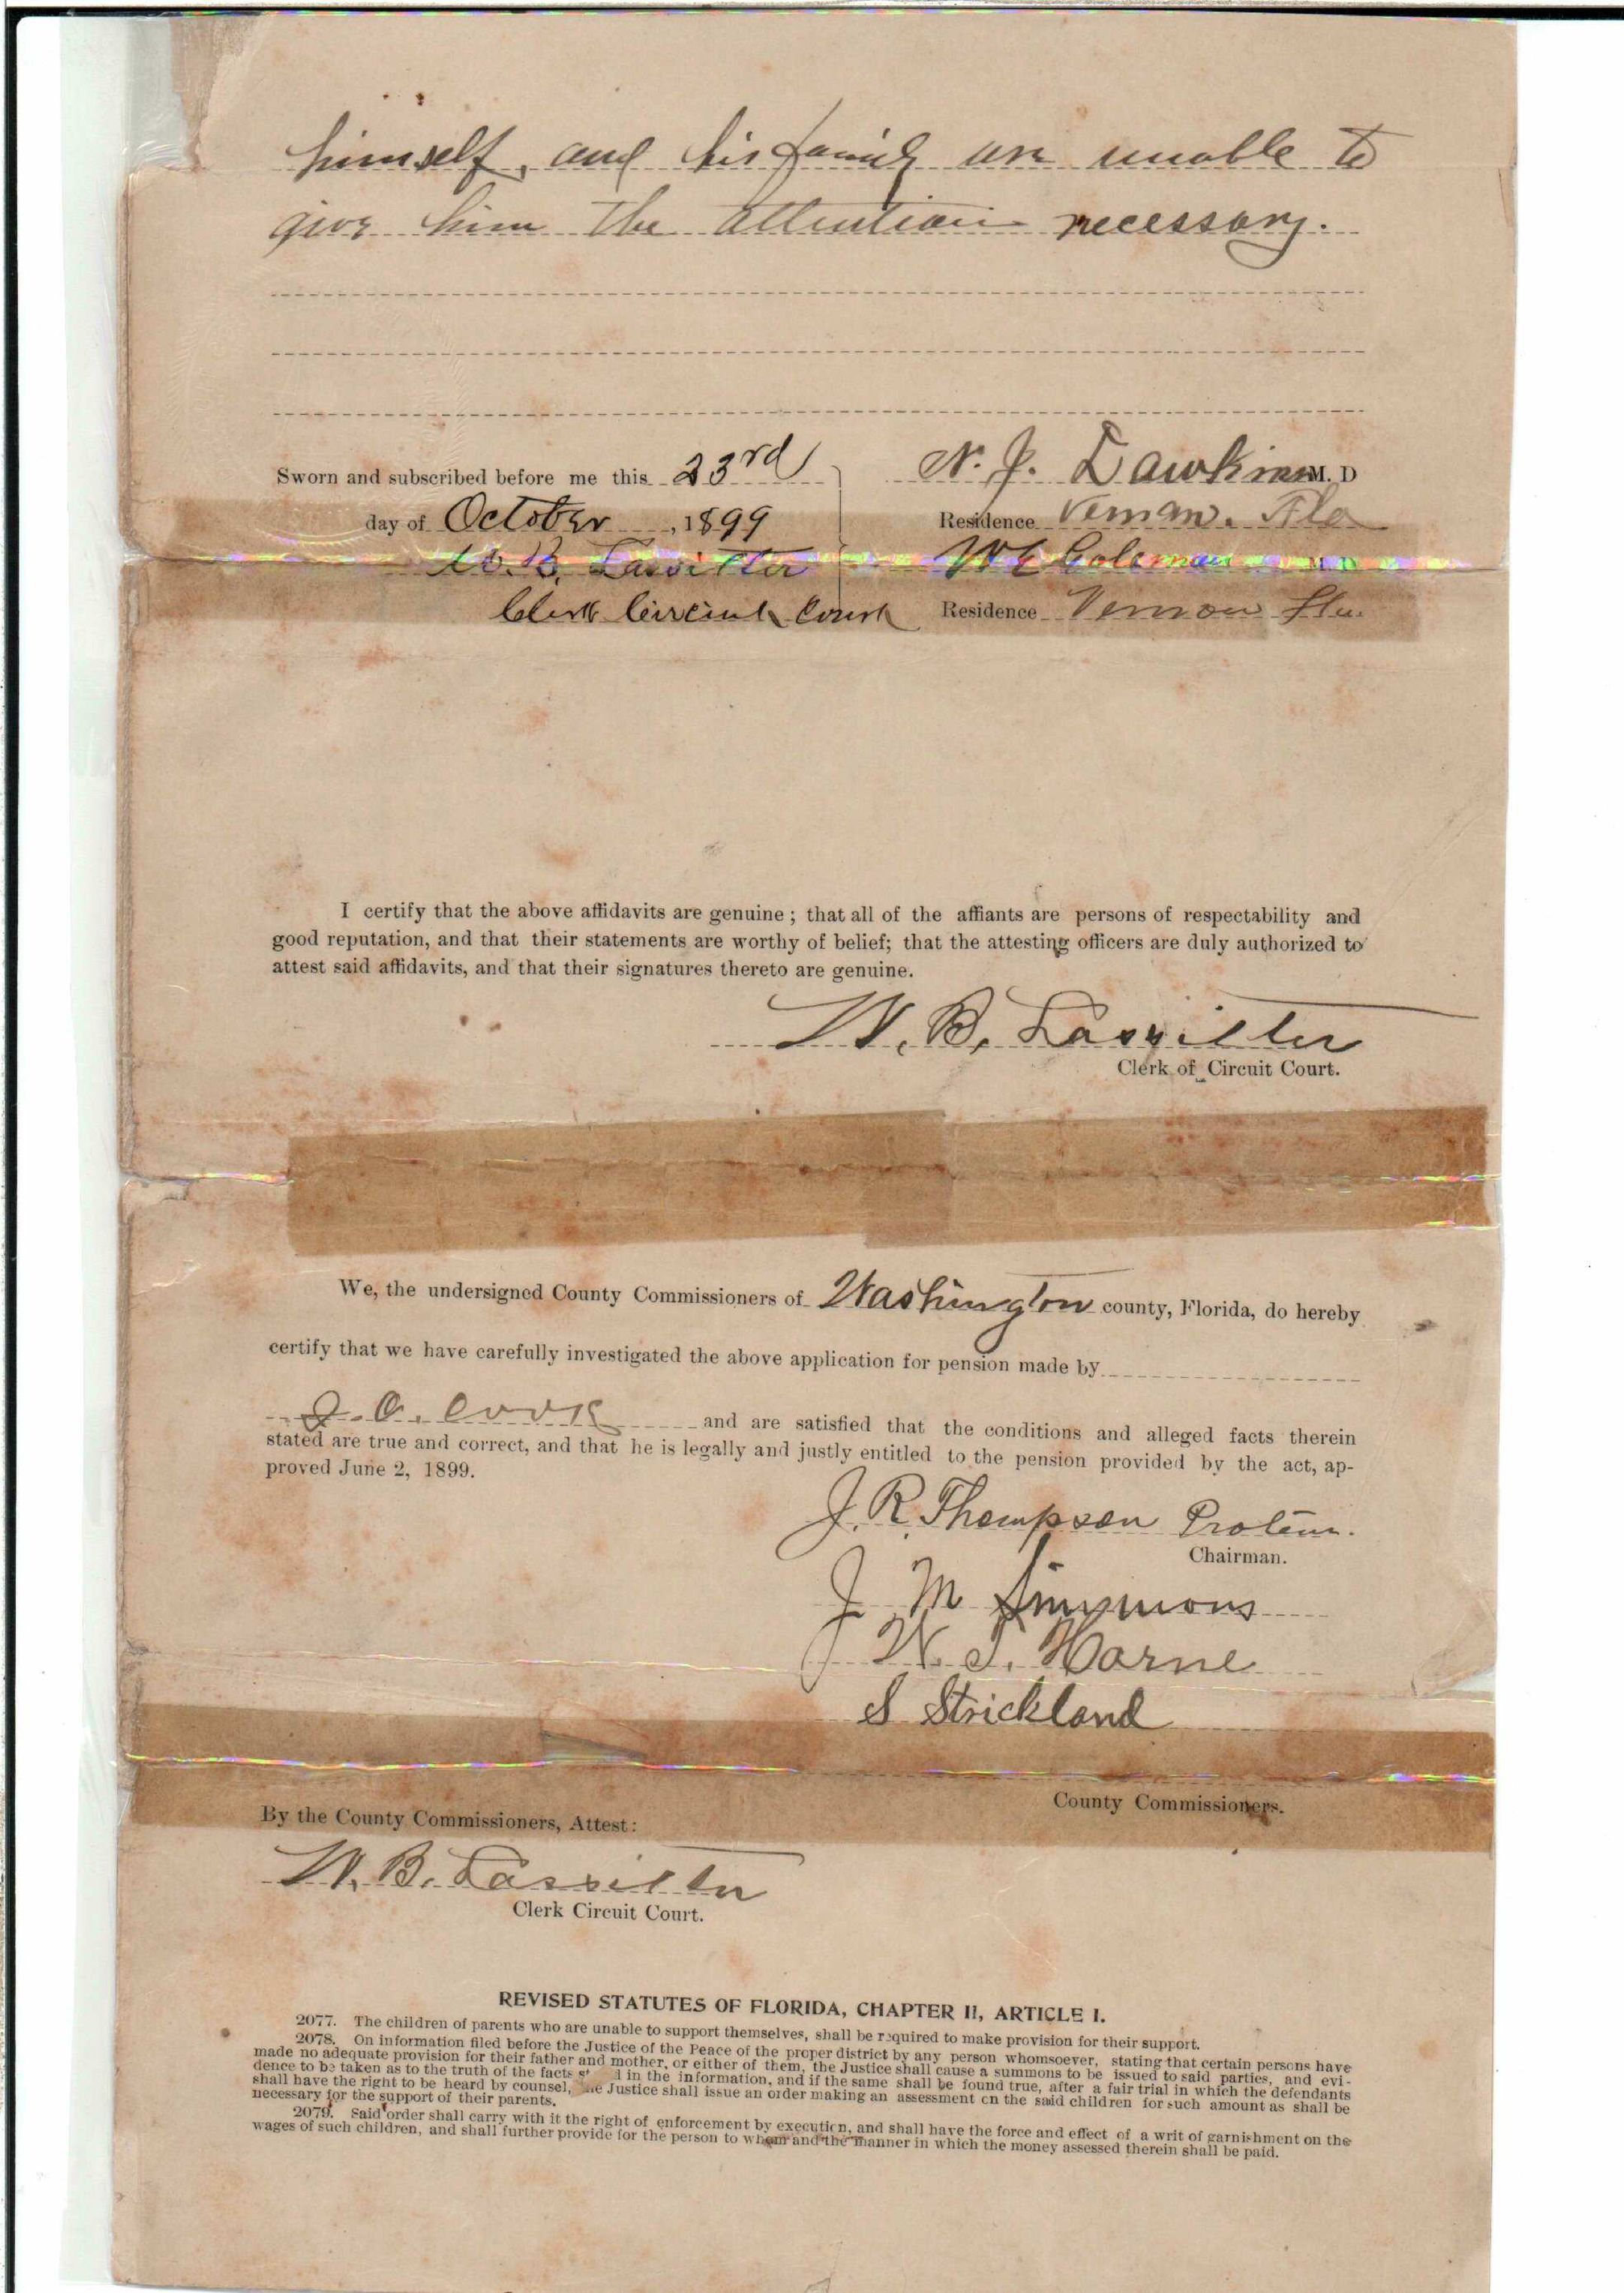 himself, and his family are unable to
give him the attention necessary.
Sworn and subscribed before me this 23rd
day of October, 1899
W. B. Lassitter
Clerk Circuit Court
N. J. Dawkins M. D
Residence Vernon, Fla
W E Coleman M. D
Residence Vernon Fla.
I certify that the above affidavits are genuine; that all of the affiants are persons of respectability and
good reputation, and that their statements are worthy of belief; that the attesting officers are duly authorized to
attest said affidavits, and that their signatures thereto are genuine.
W. B. Lassitter
Clerk of Circuit Court.
We, the undersigned County Commissioners of Washington county, Florida, do hereby
certify that we have carefully investigated the above application for pension made by
J. C. Cook and are satisfied that the conditions and alleged facts therein
stated are true and correct, and that he is legally and justly entitled to the pension provided by the act, ap-
proved June 2, 1899.
J. R. Thompson Protem.
Chairman.
J M Simmons
W. J. Horne
S Strickland
County Commissioners.
By the County Commissioners, Attest:
W. B. Lassitter
Clerk Circuit Court.
REVISED STATUTES OF FLORIDA, CHAPTER II, ARTICLE I.
2077. The children of parents who are unable to support themselves, shall be required to make provision for their support.
2078. On information filed before the Justice of the Peace of the proper district by any person whomsoever, stating that certain persons have
made no adequate provision for their father and mother, or either of them, the Justice shall cause a summons to be issued to said parties, and evi-
dence to be taken as to the truth of the facts in the information, and if the same shall be found true, after a fair trial in which the defendants
shall have the right to be heard by counsel, the Justice shall issue an order making an assessment on the said children for such amount as shall be
necessary for the support of their parents.
2079. Said order shall carry with it the right of enforcement by execution, and shall have the force and effect of a writ of garnishment on the
wages of such children, and shall further provide for the person to whom and the manner in which the money assessed therein shall be paid.